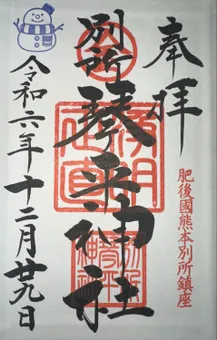 奉拝
肥後國熊本別所鎮座
別所
琴平神社
令和六年十二月廿九日